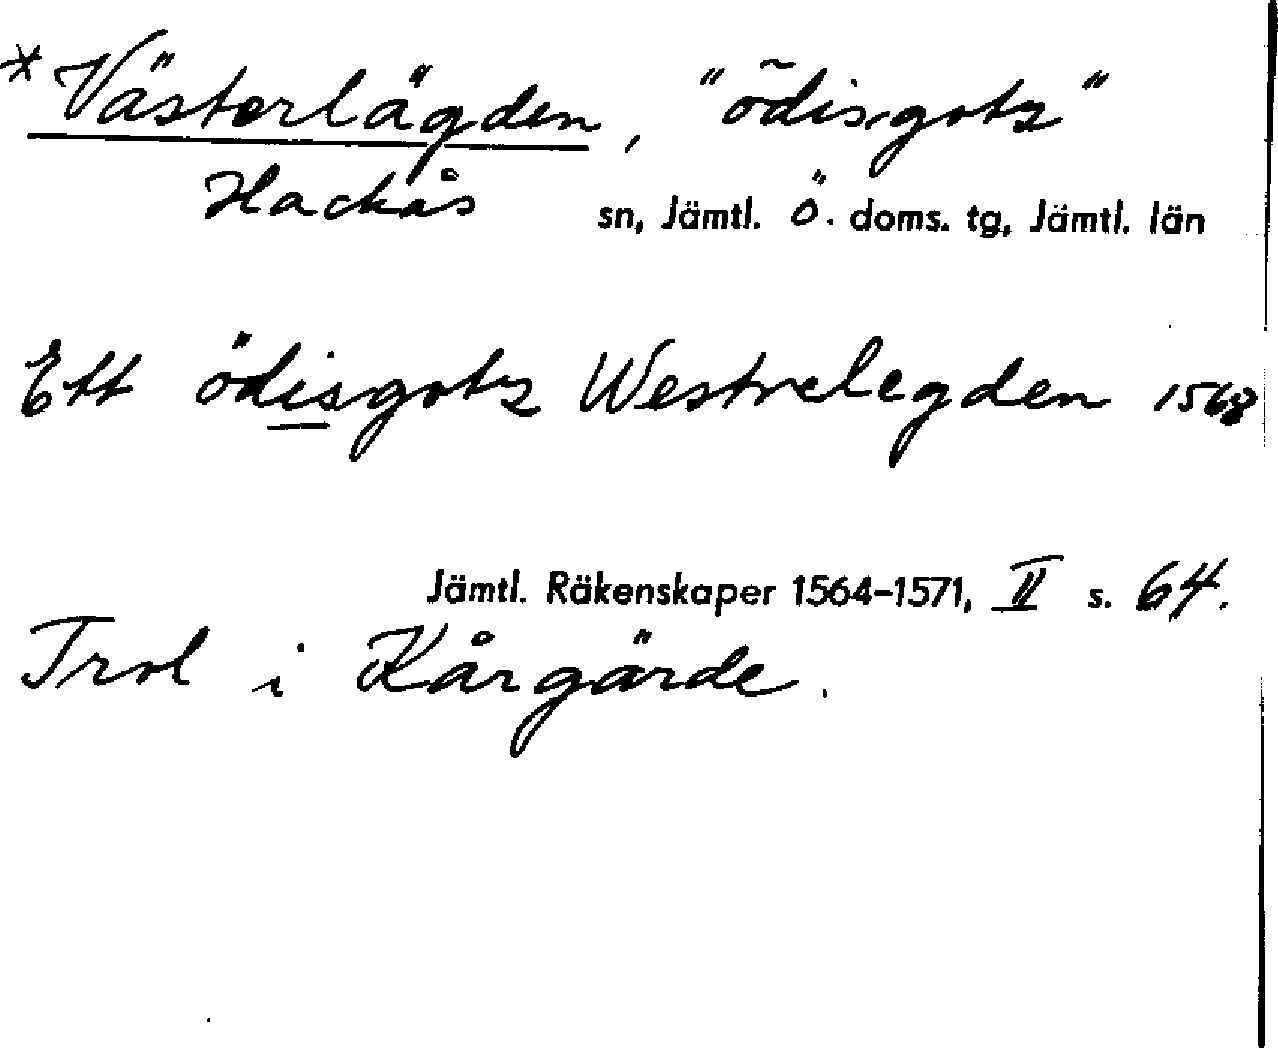 * Västerlägden, "ödisgotz"
Hackås sn, Jämtl. Ö. doms. tg, Jämtl. län
Ett ödisgotz Westrelegden 1568
Jämtl. Räkenskaper 1564-1571, II s. 64.
Trol i Kårgärde.